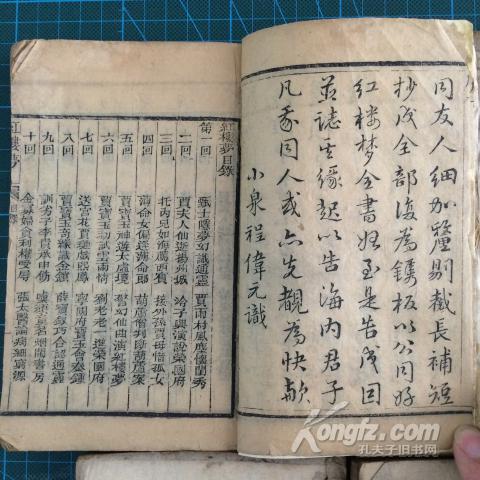 同友人細加釐剔截長補短
抄成全部復為鐫板以公同好
紅楼梦全書始至是告成因
並誌其緣起以告海内君子
凡我同人或亦先覩為快歟
小泉程偉元識
紅樓夢目錄
第一回 甄士隱夢幻識通靈 賈雨村風塵懷閨秀
二回 賈夫人仙逝揚州城 冷子興演說榮國府
三回 托内兄如海薦西賓 接外孫賈母惜孤女
四回 薄命女偏逢薄命郎 葫蘆僧判斷葫蘆案
五回 賈寶玉神遊太虛境 警幻仙曲演紅樓夢
六回 賈寶玉初試雲雨情 劉老老一進榮國府
七回 送宮花賈璉戲熙鳳 寧國府寶玉會秦鍾
八回 賈寶玉奇緣識金鎖 薛寶釵巧合認通靈
九回 訓劣子李貴承申飭 嗔頑童茗烟鬧書房
十回 金寡婦貪利權受辱 張太醫論病細窮源
紅樓夢
Kongfz.com
孔夫子旧书网